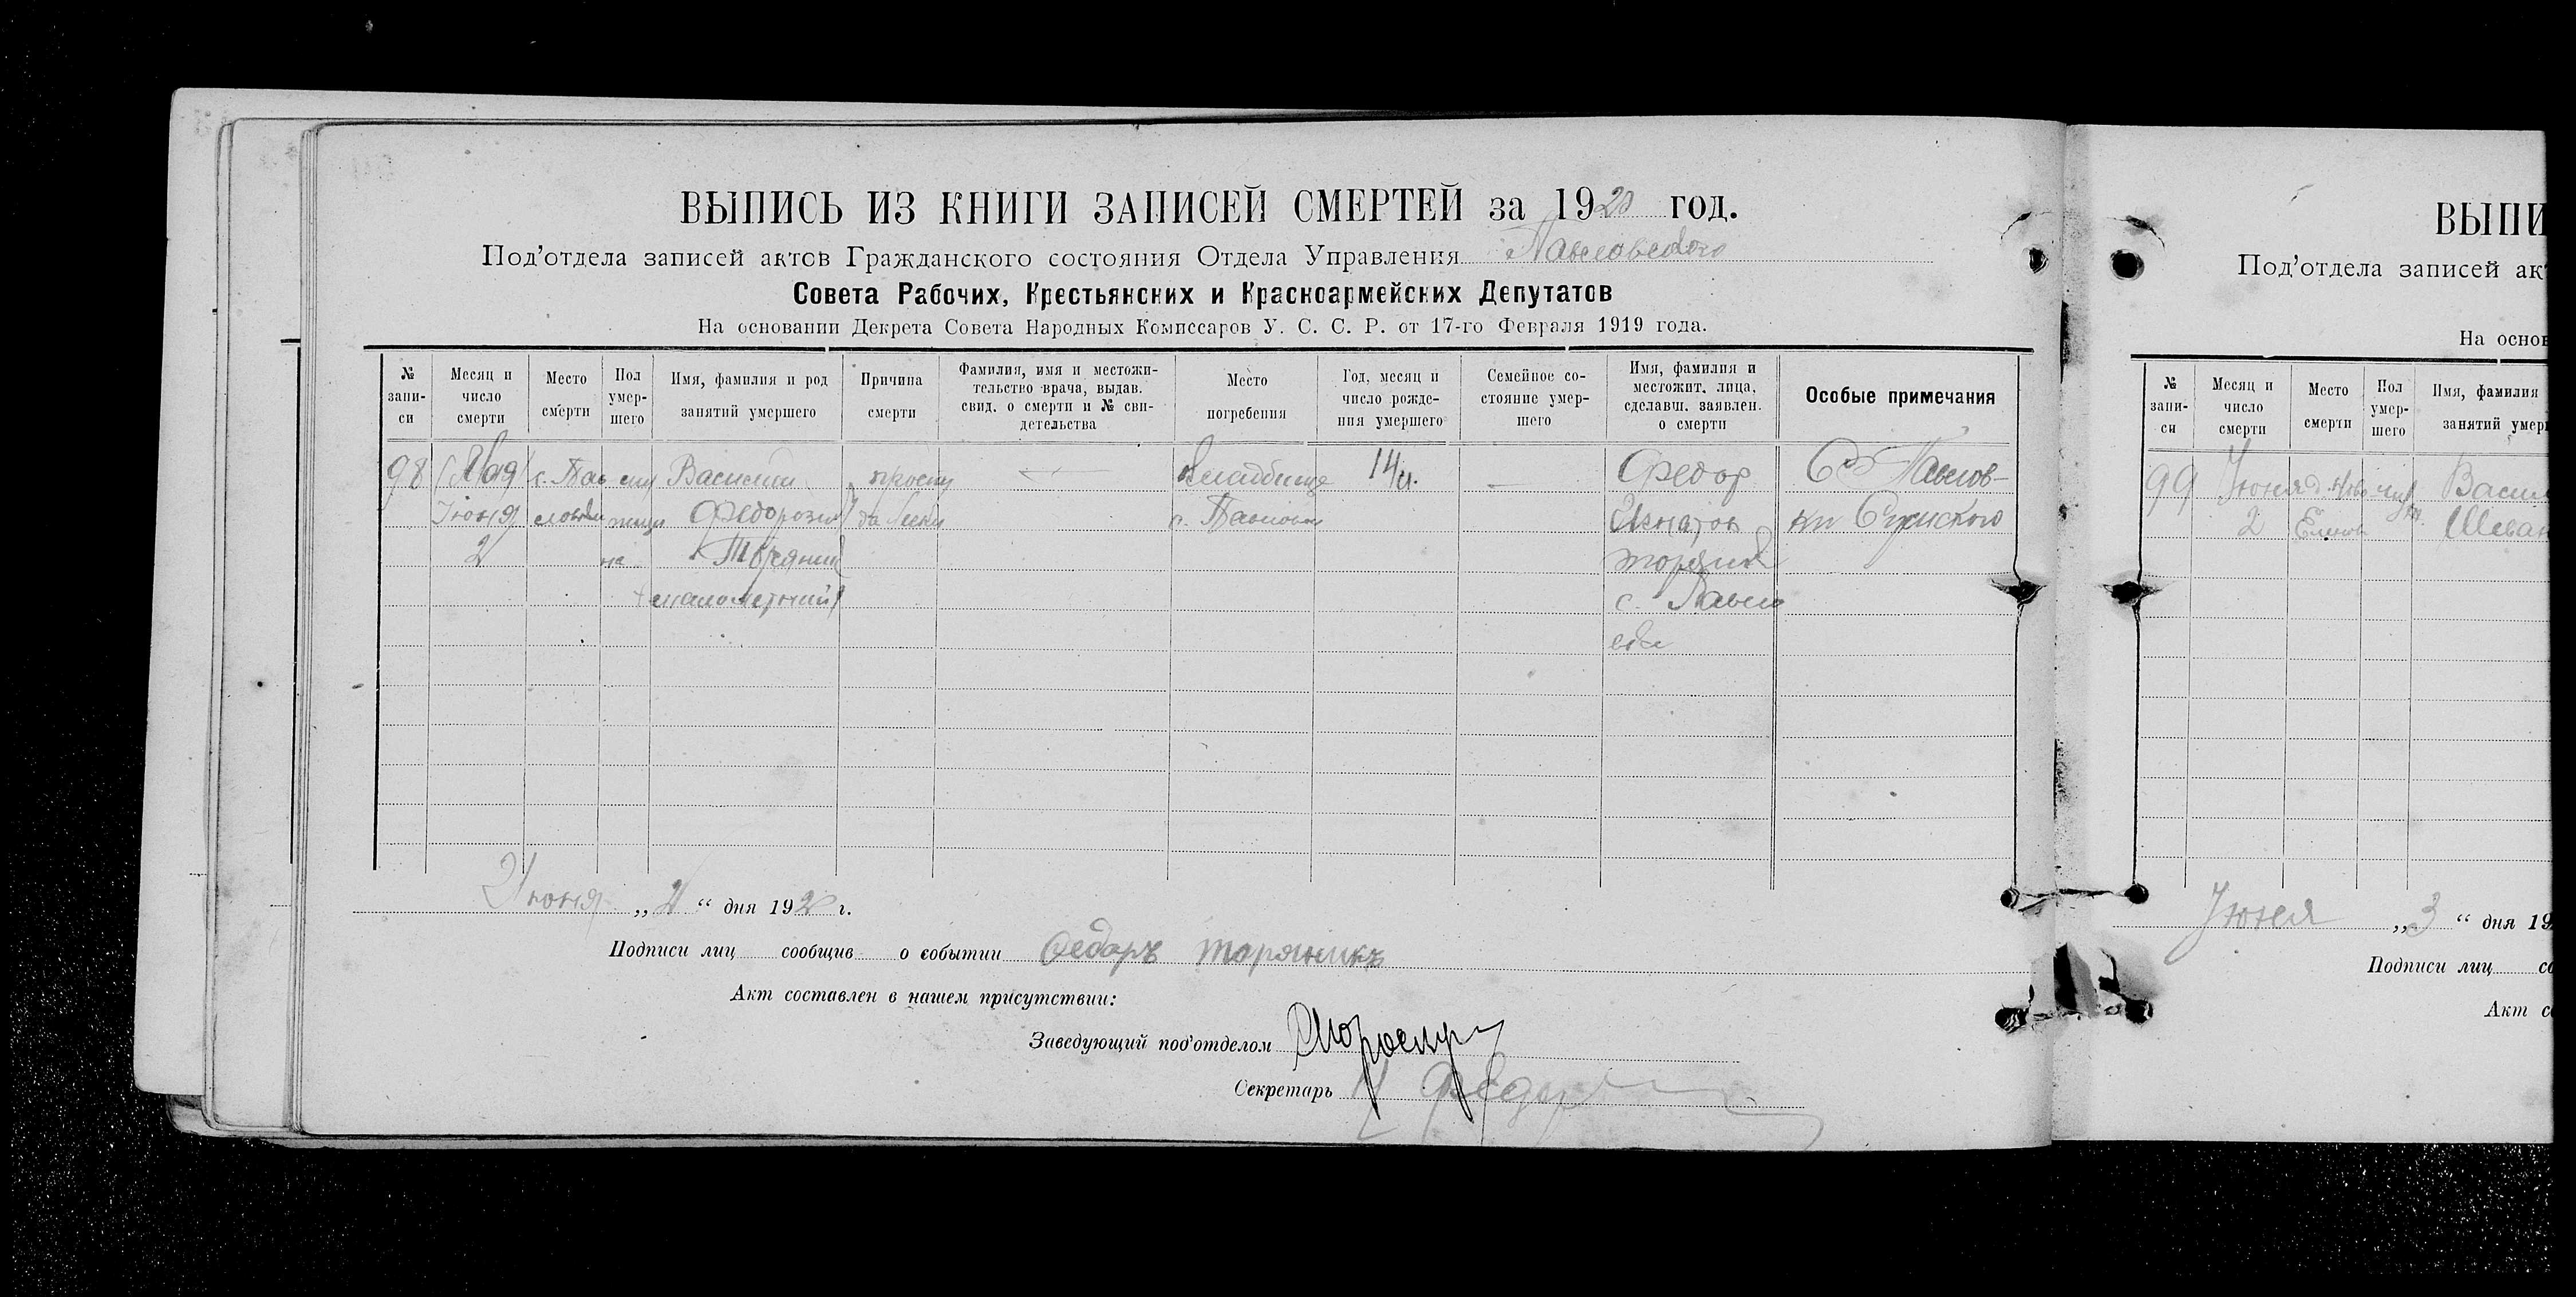 ВЫПИСЬ ИЗ КНИГИ ЗАПИСЕЙ СМЕРТЕЙ за 1920 год.
Под'отдела записей актов Гражданского состояния Отдела Управления Павловского
Совета Рабочих, Крестьянских и Красноармейских Депутатов
На основании Декрета Совета Народных Комиссаров У. С. С. Р. от 17-го Февраля 1919 года.
№ запи-си
Месяц и число смерти
Место смерти
Пол умер-шего
Имя, фамилия и род занятий умершего
Причина смерти
Фамилия, имя и местожи-тельство врача, выдав. свид. о смерти и № сви-детельства
Место погребения
Год, месяц и число рожде-ния умершего
Семейное со-стояние умер-шего
Имя, фамилия и местожит. лица, сделавш. заявлен. о смерти
Особые примечания
98 Василий Федор
Июня
2
малолетний
просту
да
Кладбище
14
Федор
Игнатов
торяник
с. Павло
вки
С Павлов-
ки Сумского
Июня „2“ дня 1920 г.
Подписи лиц сообщив о событии Федоръ торяникъ
Акт составлен в нашем присутствии:
Заведующий под'отделом
Секретарь
ВЫПИ
Под'отдела записей ак
На основ
№ запи-си
Месяц и число смерти
Место смерти
Пол умер-шего
Имя, фамилия
занятий умер
99 Июня Васил
2
Июня „3“ дня 19
Подписи лиц со
Акт с